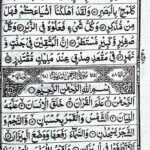 كَلَمْحٍ بِالْبَصَرِ ۝ وَلَقَدْ اَهْلَكْنَا اَشْيَاعَكُمْ فَهَلْ
مِنْ مُّدَّكِرٍ ۝ وَكُلُّ شَيْءٍ فَعَلُوْهُ فِي الزُّبُرِ ۝ وَكُلُّ
صَغِيْرٍ وَّكَبِيْرٍ مُّسْتَطَرٌ ۝ اِنَّ الْمُتَّقِيْنَ فِيْ جَنّٰتٍ وَّ
نَهَرٍ ۝ فِيْ مَقْعَدِ صِدْقٍ عِنْدَ مَلِيْكٍ مُّقْتَدِرٍ ۝
بِسْمِ اللّٰهِ الرَّحْمٰنِ الرَّحِيْمِ
اَلرَّحْمٰنُ ۝ عَلَّمَ الْقُرْاٰنَ ۝ خَلَقَ الْاِنْسَانَ ۝ عَلَّمَهُ
الْبَيَانَ ۝ اَلشَّمْسُ وَالْقَمَرُ بِحُسْبَانٍ ۝ وَّالنَّجْمُ وَ
الشَّجَرُ يَسْجُدٰنِ ۝ وَالسَّمَآءَ رَفَعَهَا وَوَضَعَ الْمِيْزَانَ